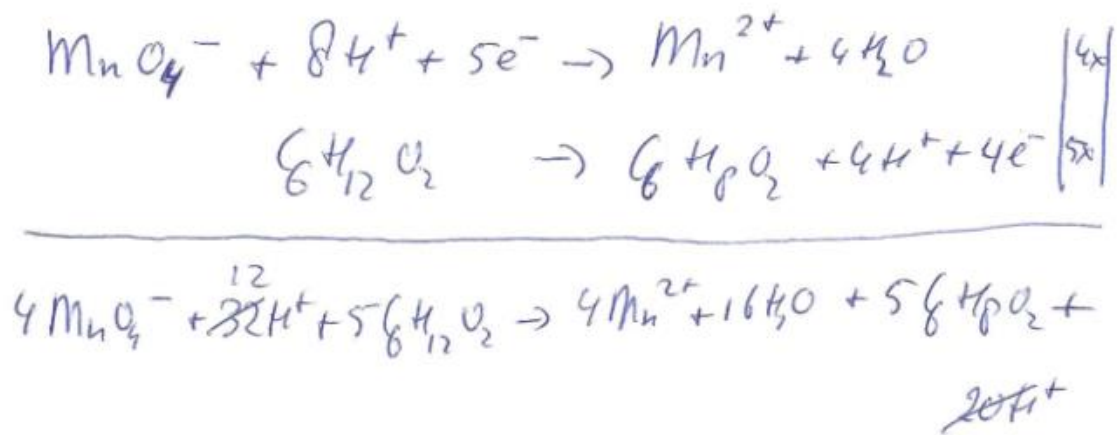 MnO₄⁻ + 8H⁺ + 5e⁻ → Mn²⁺ + 4H₂O |4x|
C₆H₁₂O₂ → C₆H₈O₂ + 4H⁺ + 4e⁻ |5x|
12
4MnO₄⁻ + 32H⁺ + 5C₆H₁₂O₂ → 4Mn²⁺ + 16H₂O + 5C₆H₈O₂ +
20H⁺